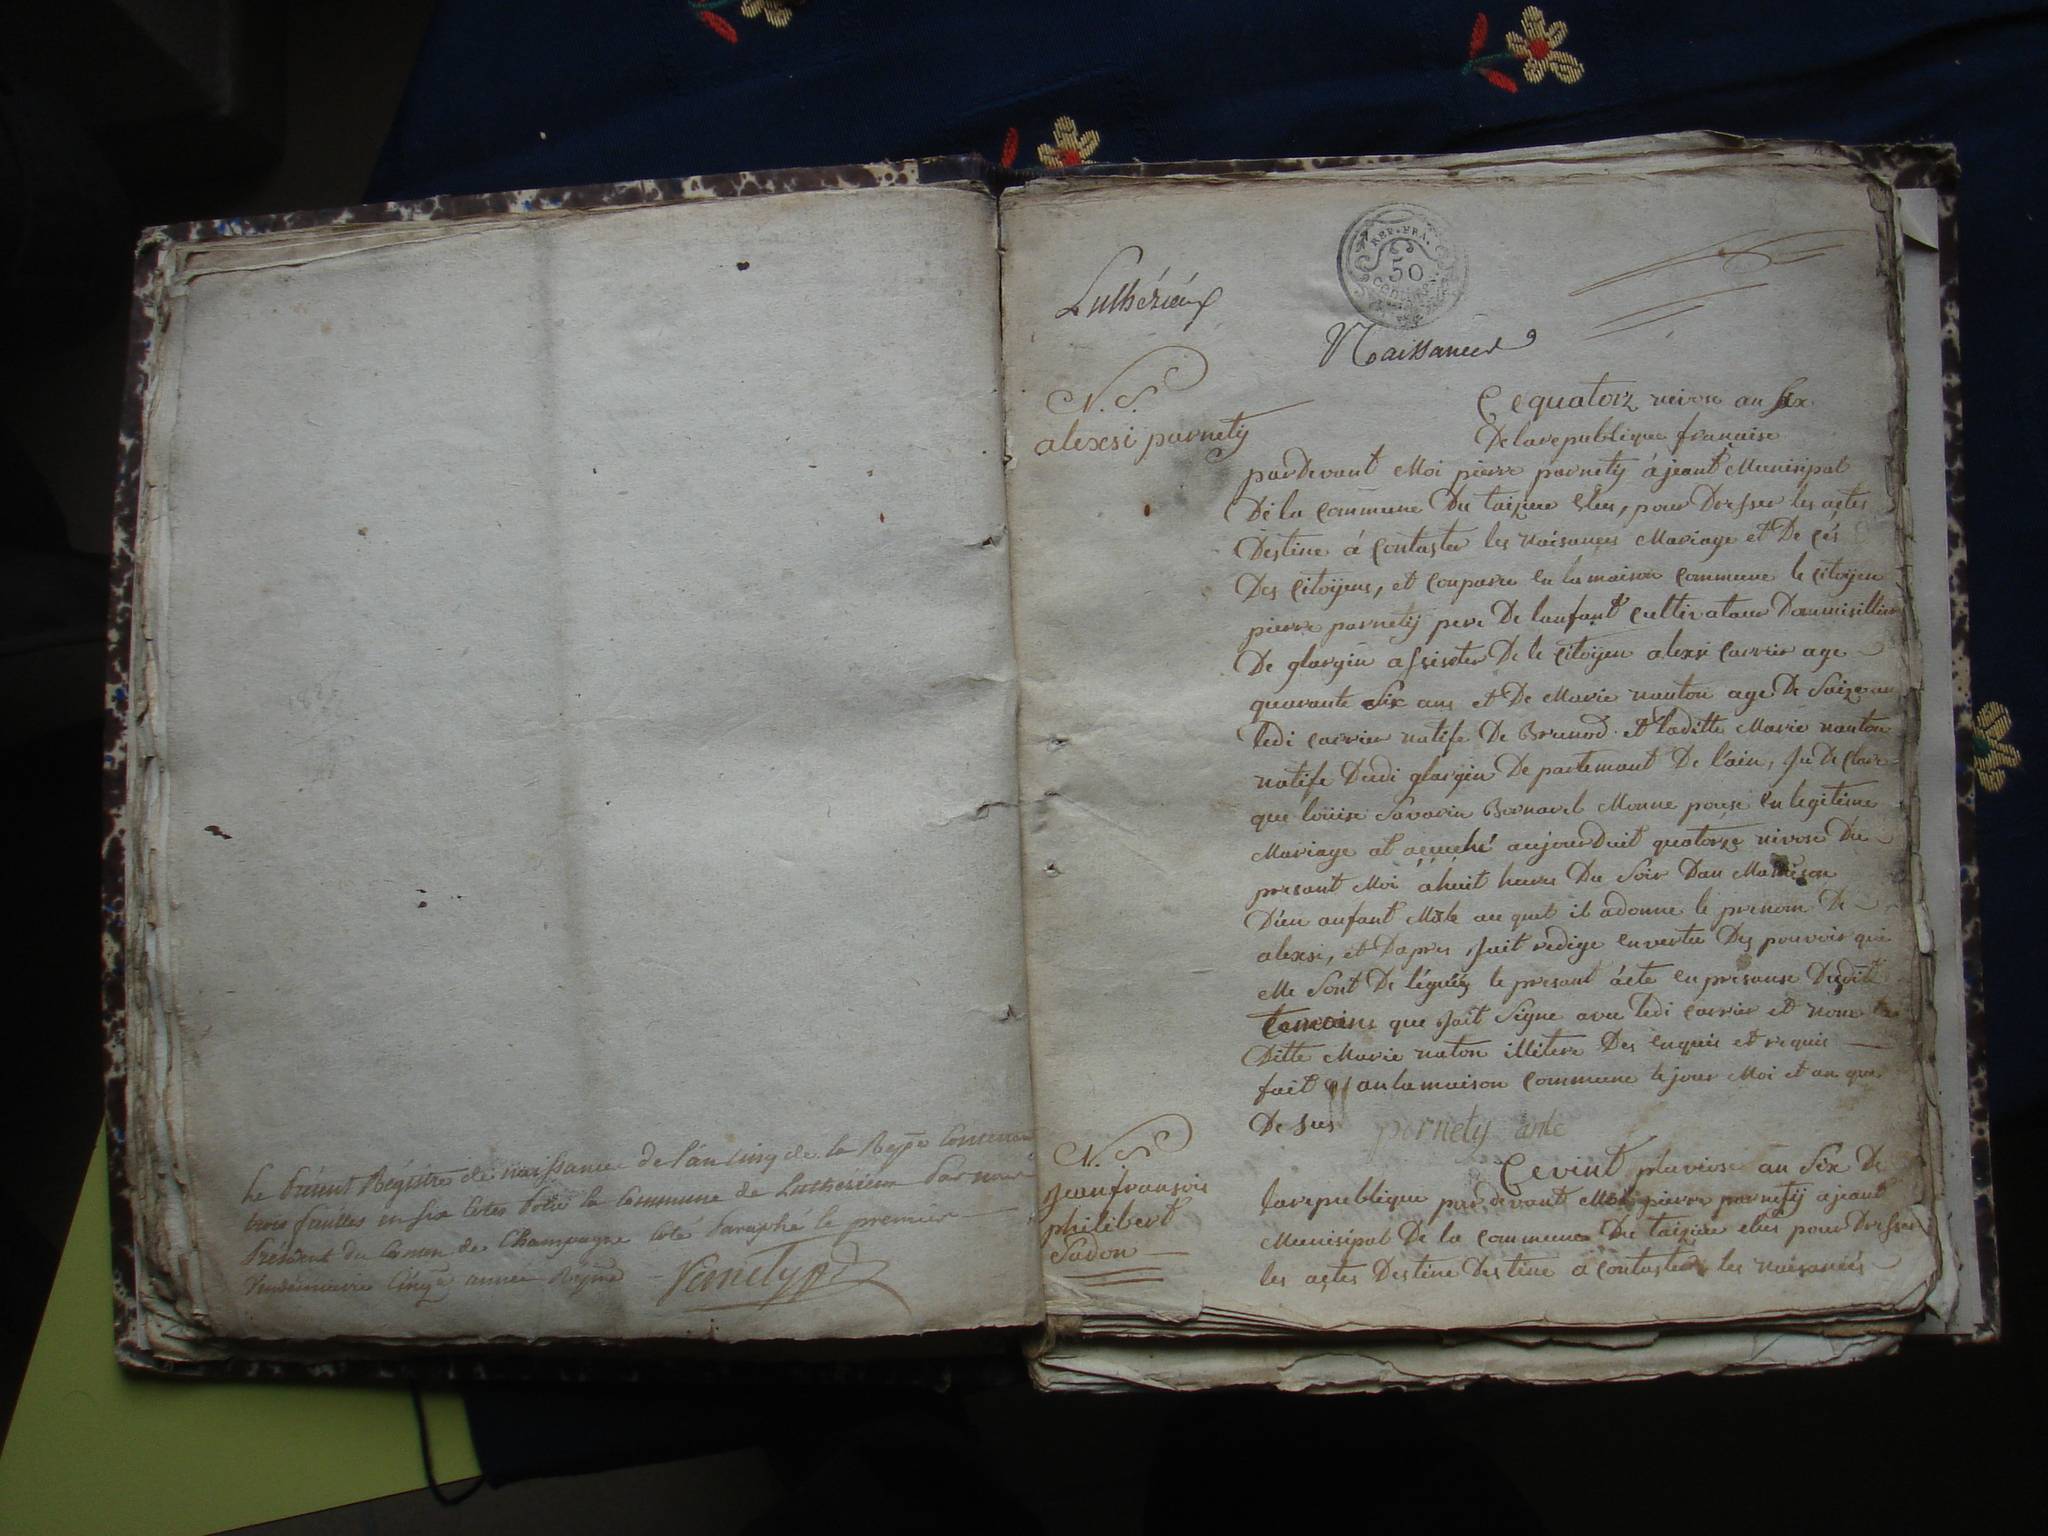 Le présent Régistre de naissance de l'an cinq de la Repe Contenant
trois feuilles en six cotes pour la Commune de Luthézieu par nous
Président du Canton de Champagne coté Paraphé le premier
Vendemiaire Cinqe année Repne Parnety pt
Luthézieux
REP. FRA.
50
centimes
Naissances
N. S.
alexsi parnetÿ
Cequatorz nivose an Six
De larepublique françaisse
pardevant Moi pierre parnetÿ ajeant Munisipal
De la commune Du taizieu Eleu, pour Dresser les actes
Destine a Contaster les naisances Mariage et De cés
Des Citoÿens, et Conpare en la maison Commune le Citoÿen
pierre parnetÿ pere De lanfant Cultivataur Daumisillier
De glargin assisster De le Citoÿen alexsi Carrier age
quarante Six ans et De Marie nanton age De Saize an
ledi Carrier natife De Brenod et laditte Marie nanton
natife Dudi glargin De partemant De lain, Ju De Clare
que loüise Savarin Bernard Monne pouse En legitime
Mariage at acuché aujourDuit quatorze nivose Du
presant Moi a huit heure Du Soir Dan Ma Maison
D'eu anfant Male au quel il adonne le prenom De
alexsi, et Dapres Jait redige En vertu Des pouvoir qui
Me Sont De légués le presant acte En presanse Desdit
temoins que Jait Signe avec ledi Carrier et nom la
Ditte Marie naton illitere Des enquis et requis
fait an la maison Commune le jour Moi et an que
De sus parnety ante
N. S.
Jean fransois
philibert
Sadon
Cevint pluviose an Six De
larepublique pardevant Moi pierre parnetÿ ajeant
Munisipal De la commune Du taizieu eleu pour Dresser
les actes Destine Destine a Contaster les naisances